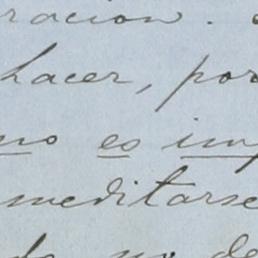 racion.
hacer, por
no es im
meditarse
no de